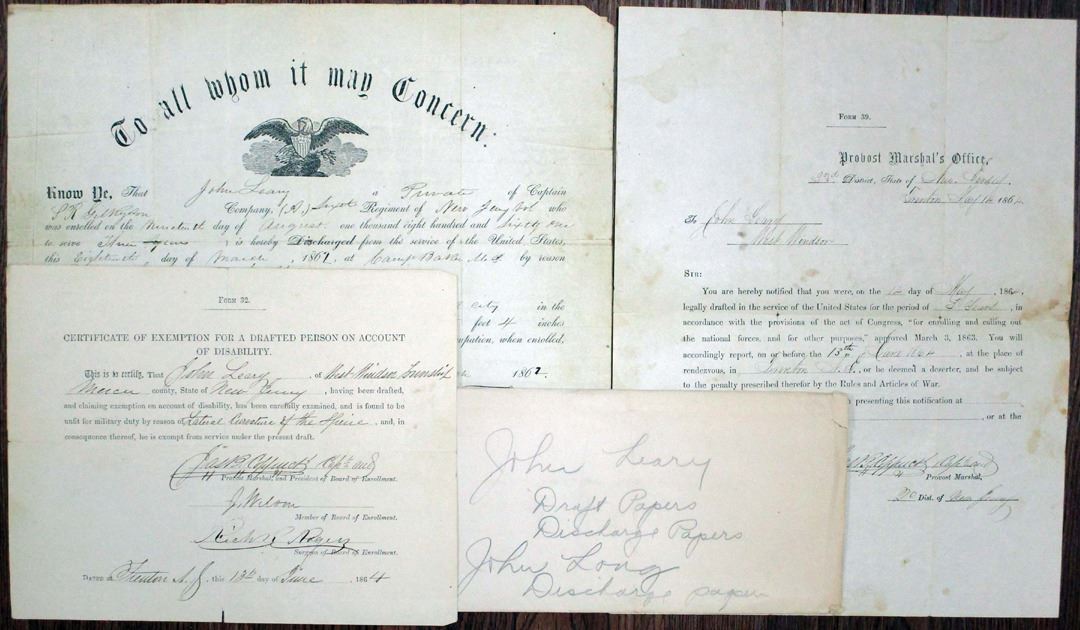 To all whom it may Concern:
Know Ye, That John Leary a Private of Captain
Company, (A.) Sixth Regiment of New Jersey Vol who
was enrolled on the Nineteenth day of August one thousand eight hundred and Sixty one
to serve three years is hereby Discharged from the service of the United States,
this Eighteenth day of March, 1862, at Camp Baker Md by reason
city in the
feet 4 inches
upation, when enrolled,
1862.
Form 32.
CERTIFICATE OF EXEMPTION FOR A DRAFTED PERSON ON ACCOUNT
OF DISABILITY.
This is to certify, That John Leary, of West Windsor Township
Mercer county, State of New Jersey, having been drafted,
and claiming exemption on account of disability, has been carefully examined, and is found to be
unfit for military duty by reason of Lateral Curvature of the Spine, and, in
consequence thereof, he is exempt from service under the present draft.
Capt and
Provost Marshal, and President of Board of Enrollment.
J. Wilson
Member of Board of Enrollment.
Rich R Rogers
Surgeon of Board of Enrollment.
Dated at Trenton N. J. this 13th day of June 1864
Form 39.
Provost Marshal's Office,
2nd District, State of New Jersey.
Trenton May 14, 1864
To John Leary
West Windsor
Sir:
You are hereby notified that you were, on the 12 day of May, 1864,
legally drafted in the service of the United States for the period of 3 Years, in
accordance with the provisions of the act of Congress, "for enrolling and calling out
the national forces, and for other purposes," approved March 3, 1863. You will
accordingly report, on or before the 13th of June 1864, at the place of
rendezvous, in Trenton N.J., or be deemed a deserter, and be subject
to the penalty prescribed therefor by the Rules and Articles of War.
presenting this notification at
, or at the
Capt and
Provost Marshal,
2nd Dist. of New Jersey
John Leary
Draft Papers
Discharge Papers
John Long
Discharge papers